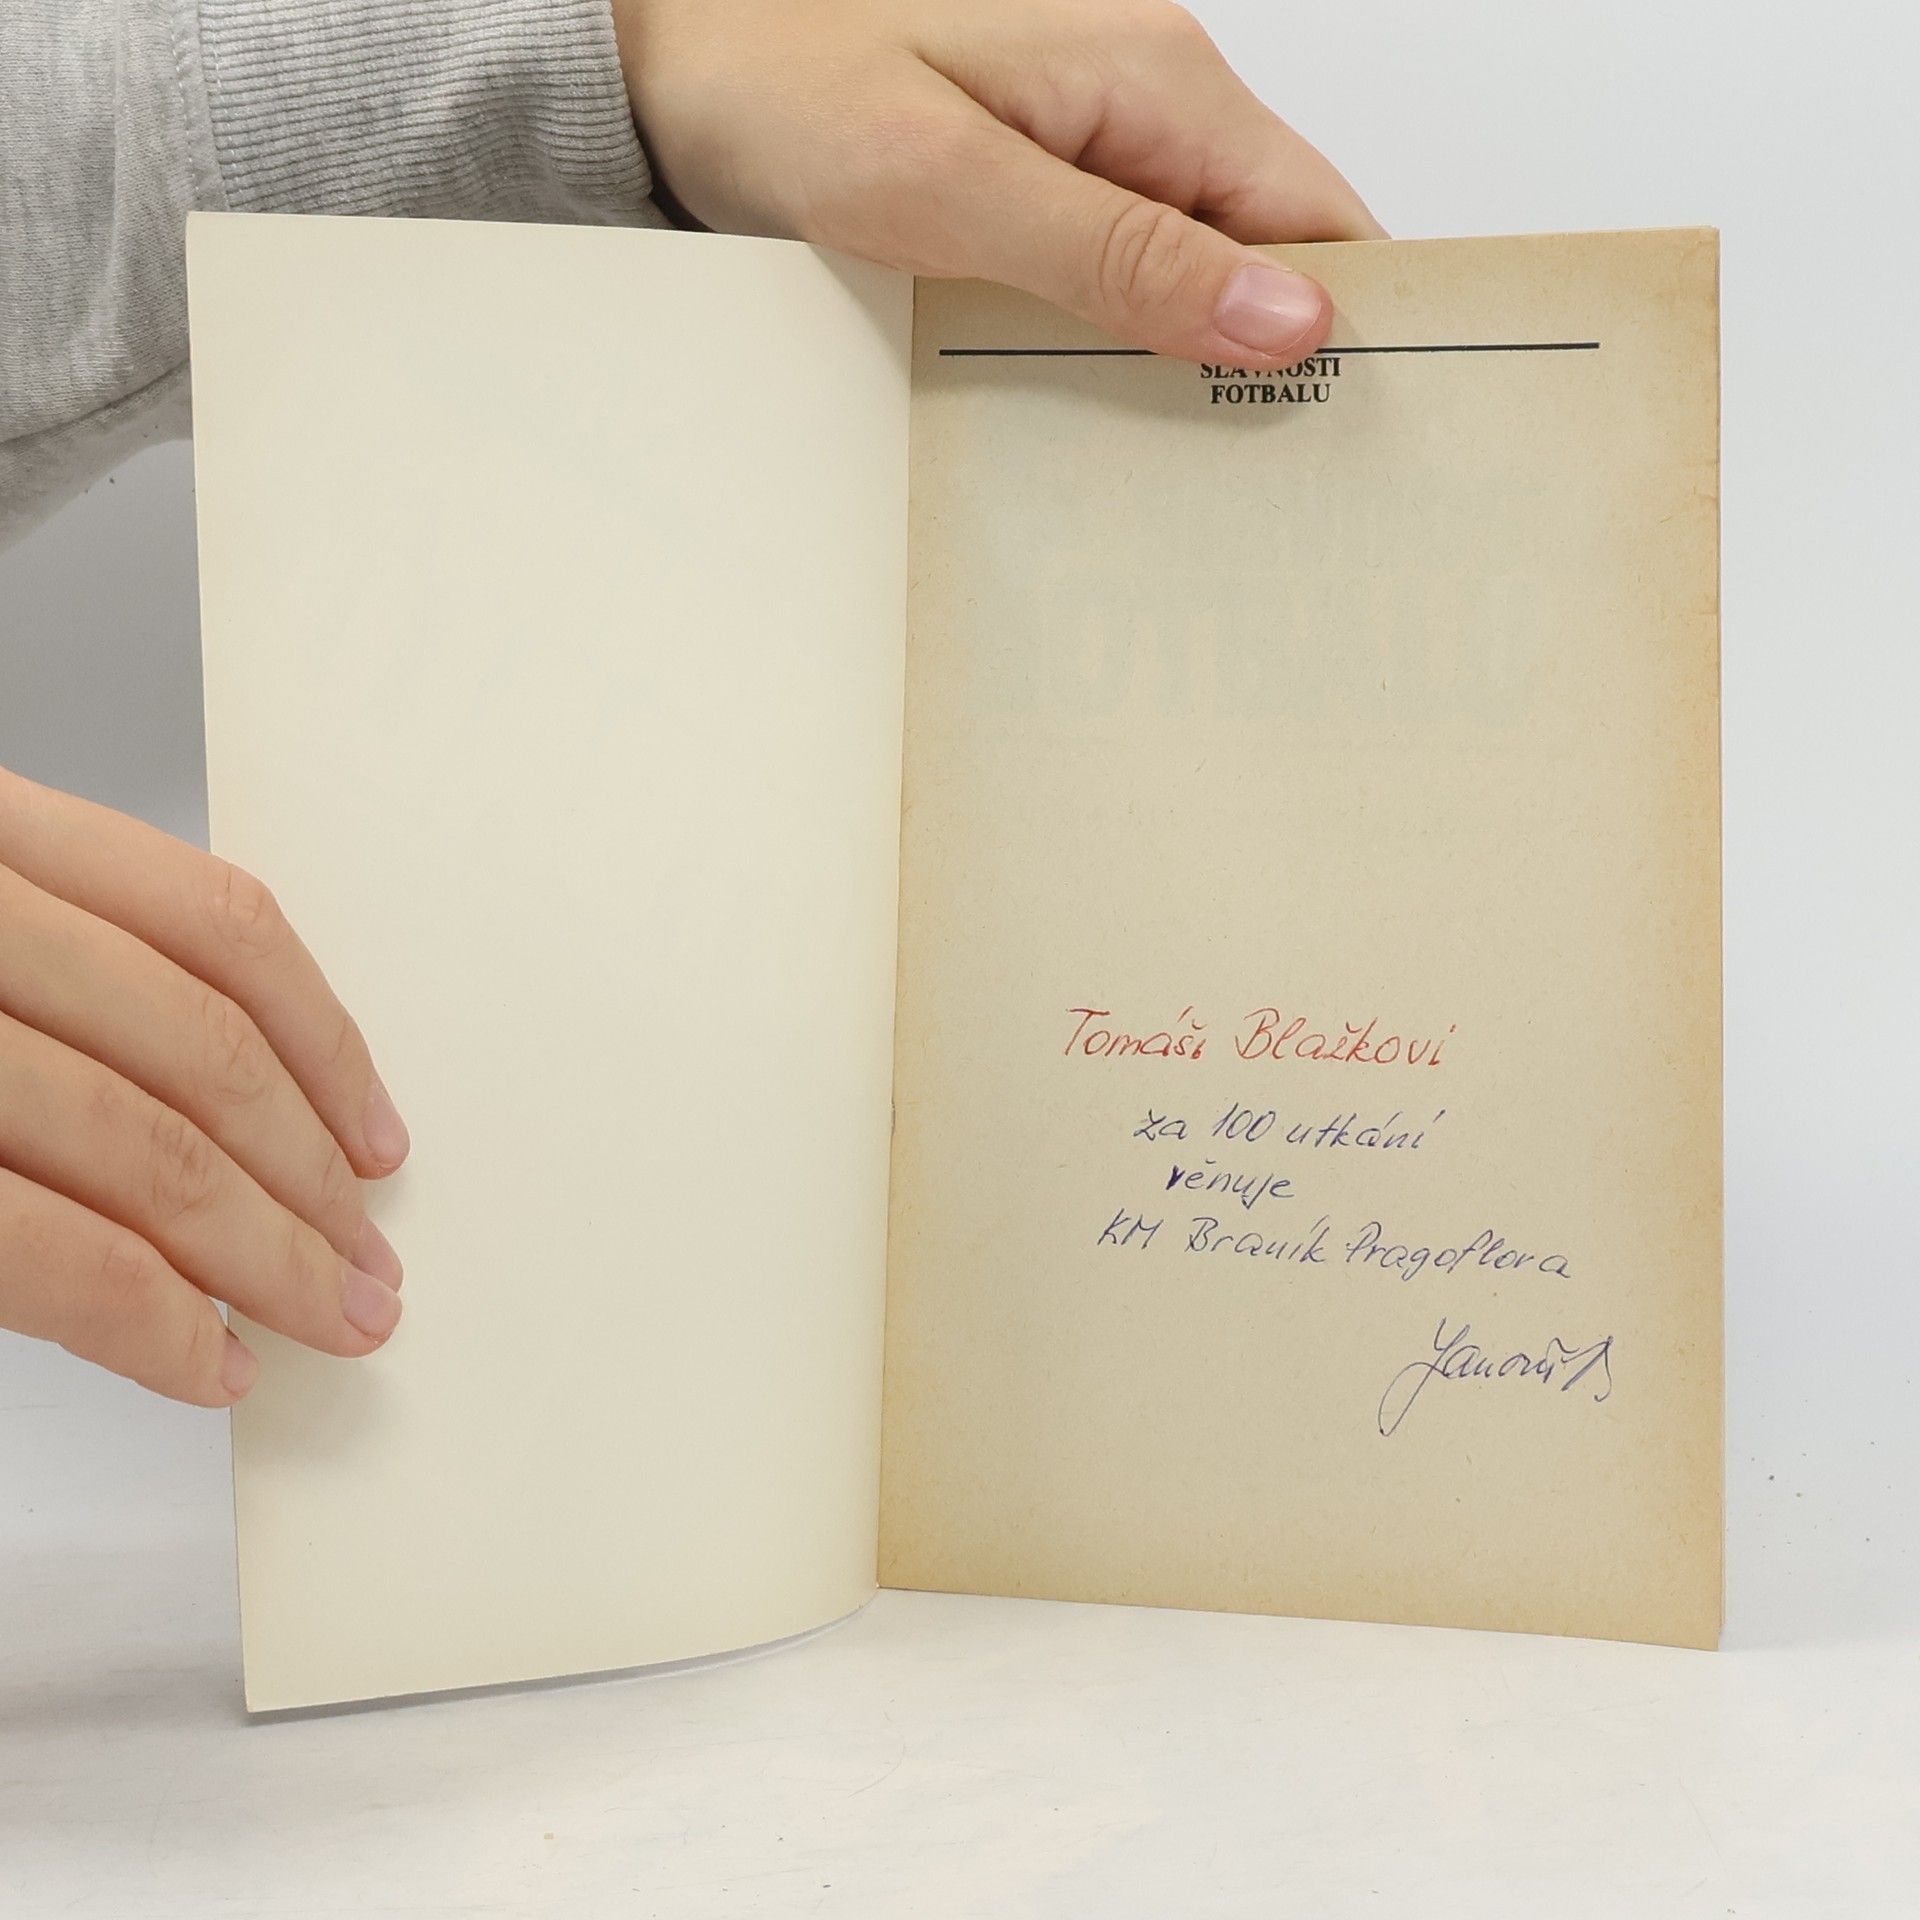 SLAVNOSTI
FOTBALU
Tomáši Blažkovi
za 100 utkání
věnuje
KM Braník Pragoflora